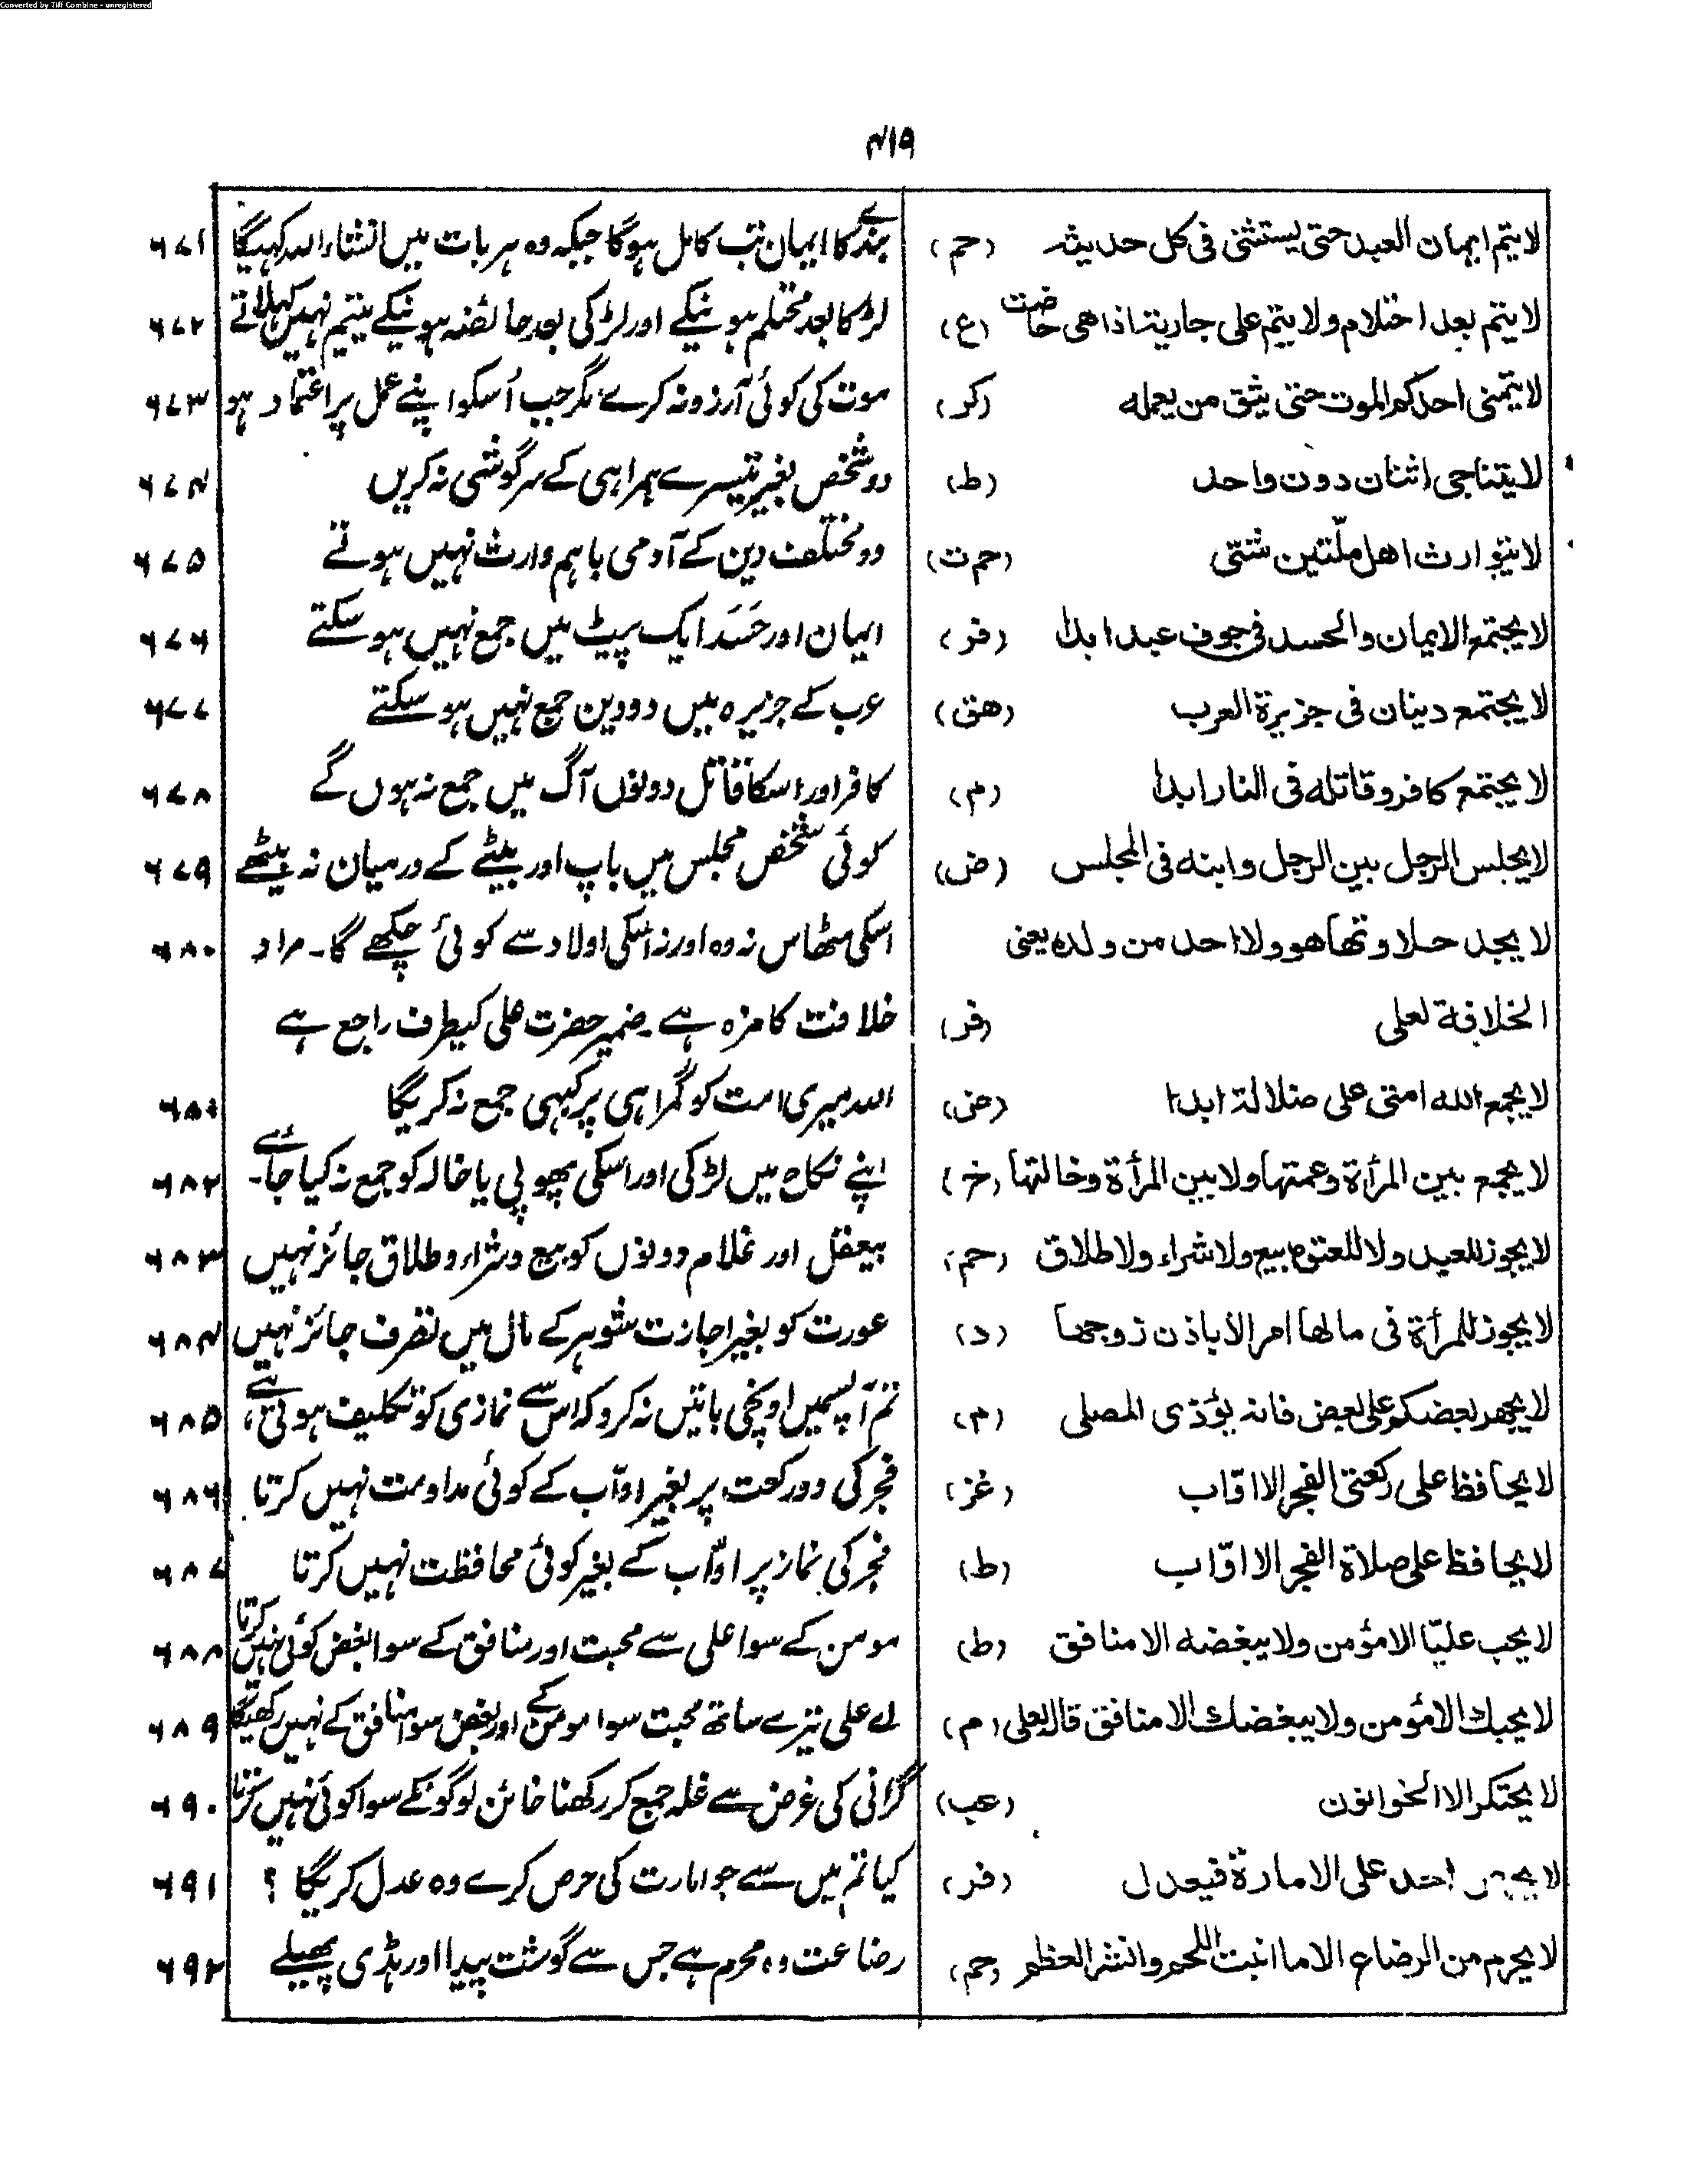 Converted by Tiff Combine - unregistered
۴۱۹
لا يتم ايمان العبد حتى يستثنى فى كل حديثه (حم) بندےکا ایمان تب کامل ہوگا جبکہ وہ ہر بات میں انشاء اللہ کہیگا ۶۷۱
لا يتم بعد احتلام ولا يتم على جارية اذا هى حاضت (ع) لڑکا بعد محتلم ہونیکے اور لڑکی بعد حائضہ ہونیکے یتیم نہیں کہلاتے ۶۷۲
لا يتمنى احدكم الموت حتى يثق من يعمله (كر) موت کی کوئی آرزو نہ کرے مگر جب اُسکو اپنے عمل پر اعتماد ہو ۶۷۳
لا يتناجى اثنان دون واحد (ط) دو شخص بغیر تیسرے ہمراہی کے سرگوشی نہ کریں ۶۷۴
لا يتوارث اهل ملّتين شتى (حم ت) دو مختلف دین کے آدمی باہم وارث نہیں ہوتے ۶۷۵
لا يجتمع الايمان والحسد فى جوف عبد ابدا (فر) ایمان اور حَسَد ایک پیٹ میں جمع نہیں ہوسکتے ۶۷۶
لا يجتمع دينان فى جزيرة العرب (هق) عرب کے جزیرہ میں دو دین جمع نہیں ہوسکتے ۶۷۷
لا يجتمع كافر و قاتله فى النار ابدا (م) کافر اور اسکا قاتل دونوں آگ میں جمع نہ ہوں گے ۶۷۸
لا يجلس الرجل بين الرجل وابنه فى المجلس (ض) کوئی شخص مجلس میں باپ اور بیٹے کے درمیان نہ بیٹھے ۶۷۹
لا يجد حلاوتها هو ولا احد من ولده يعنى اسکی مٹھاس نہ وہ اور نہ اسکی اولاد سے کوئی چکھے گا۔ مراد ۶۸۰
الخلافة لعلى (فر) خلافت کا مزہ ہے۔ ضمیر حضرت علی کیطرف راجع ہے
لا يجمع الله امتى على ضلالة ابدا (ض) اللہ میری امت کو گمراہی پر کبہی جمع نہ کریگا ۶۸۱
لا يجمع بين المرأة وعمتها ولا بين المرأة وخالتها (خ) اپنے نکاح میں لڑکی اور اسکی پھوپی یا خالہ کو جمع نہ کیا جائے۔ ۶۸۲
لا يجوز للعبد ولا للمعتوه بيع ولا شراء ولا طلاق (حم) بیعقل اور غلام دونوں کو بیع وشراء وطلاق جائز نہیں ۶۸۳
لا يجوز للمرأة فى مالها امر الا باذن زوجها (د) عورت کو بغیر اجازت شوہر کے مال میں تصرف جائز نہیں ۶۸۴
لا يجهر بعضكم على بعض فانه يؤذى المصلى (م) تم آپسمیں اونچی باتیں نہ کرو کہ اس سے نمازی کو تکلیف ہوتی ہے، ۶۸۵
لا يحافظ على ركعتى الفجر الا اوّاب (غز) فجر کی دو رکعت پر بغیر اوّاب کے کوئی مداومت نہیں کرتا ۶۸۶
لا يحافظ على صلاة الفجر الا اوّاب (ط) فجر کی نماز پر اوّاب کے بغیر کوئی محافظت نہیں کرتا ۶۸۷
لا يحب عليّا الا مؤمن ولا يبغضه الا منافق (ط) مومن کے سوا علی سے محبت اور منافق کے سوا بغض کوئی نہیں کرتا ۶۸۸
لا يحبك الا مؤمن ولا يبغضك الا منافق قال لعلى (م) اے علی تیرے ساتھ محبت سوا مومن کے اور بغض سوا منافق کے نہیں رکھیگا ۶۸۹
لا يحتكر الا الخوانون (عب) گرانی کی غرض سے غلہ جمع کر رکھنا خائن لوگونکے سوا کوئی نہیں کرتا ۶۹۰
احد على الامارة فيعدل (فر) کیا تم میں سے جو امارت کی حرص کرے وہ عدل کریگا ؟ ۶۹۱
لا يحرم من الرضاع الا ما انبت اللحم وانشر العظم (حم) رضاعت وہ محرم ہے جس سے گوشت پیدا اور ہڈی پھیلے ۶۹۲